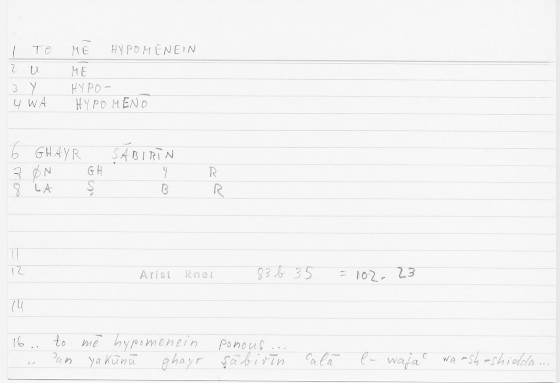 1 TO MĒ HYPOMENEIN
2 U MĒ
3 Y HYPO-
4 WA HYPOMENŌ
6 GHAYR ṢĀBIRĪN
7 ØN GH Y R
8 LA Ṣ B R
11
12 Arist Rhet 83b 35 = 102.23
14
16 .. to mē hypomenein ponous ...
.. ʾan yakūnū ghayr ṣābirīn ʿalā l-wajaʿ wa-sh-shidda ...